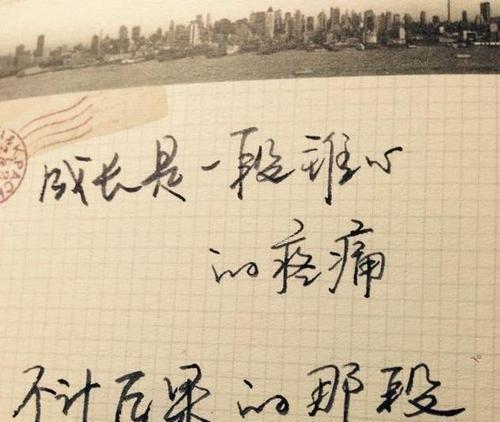 成长是一段难心
的疼痛
不计后果的那段